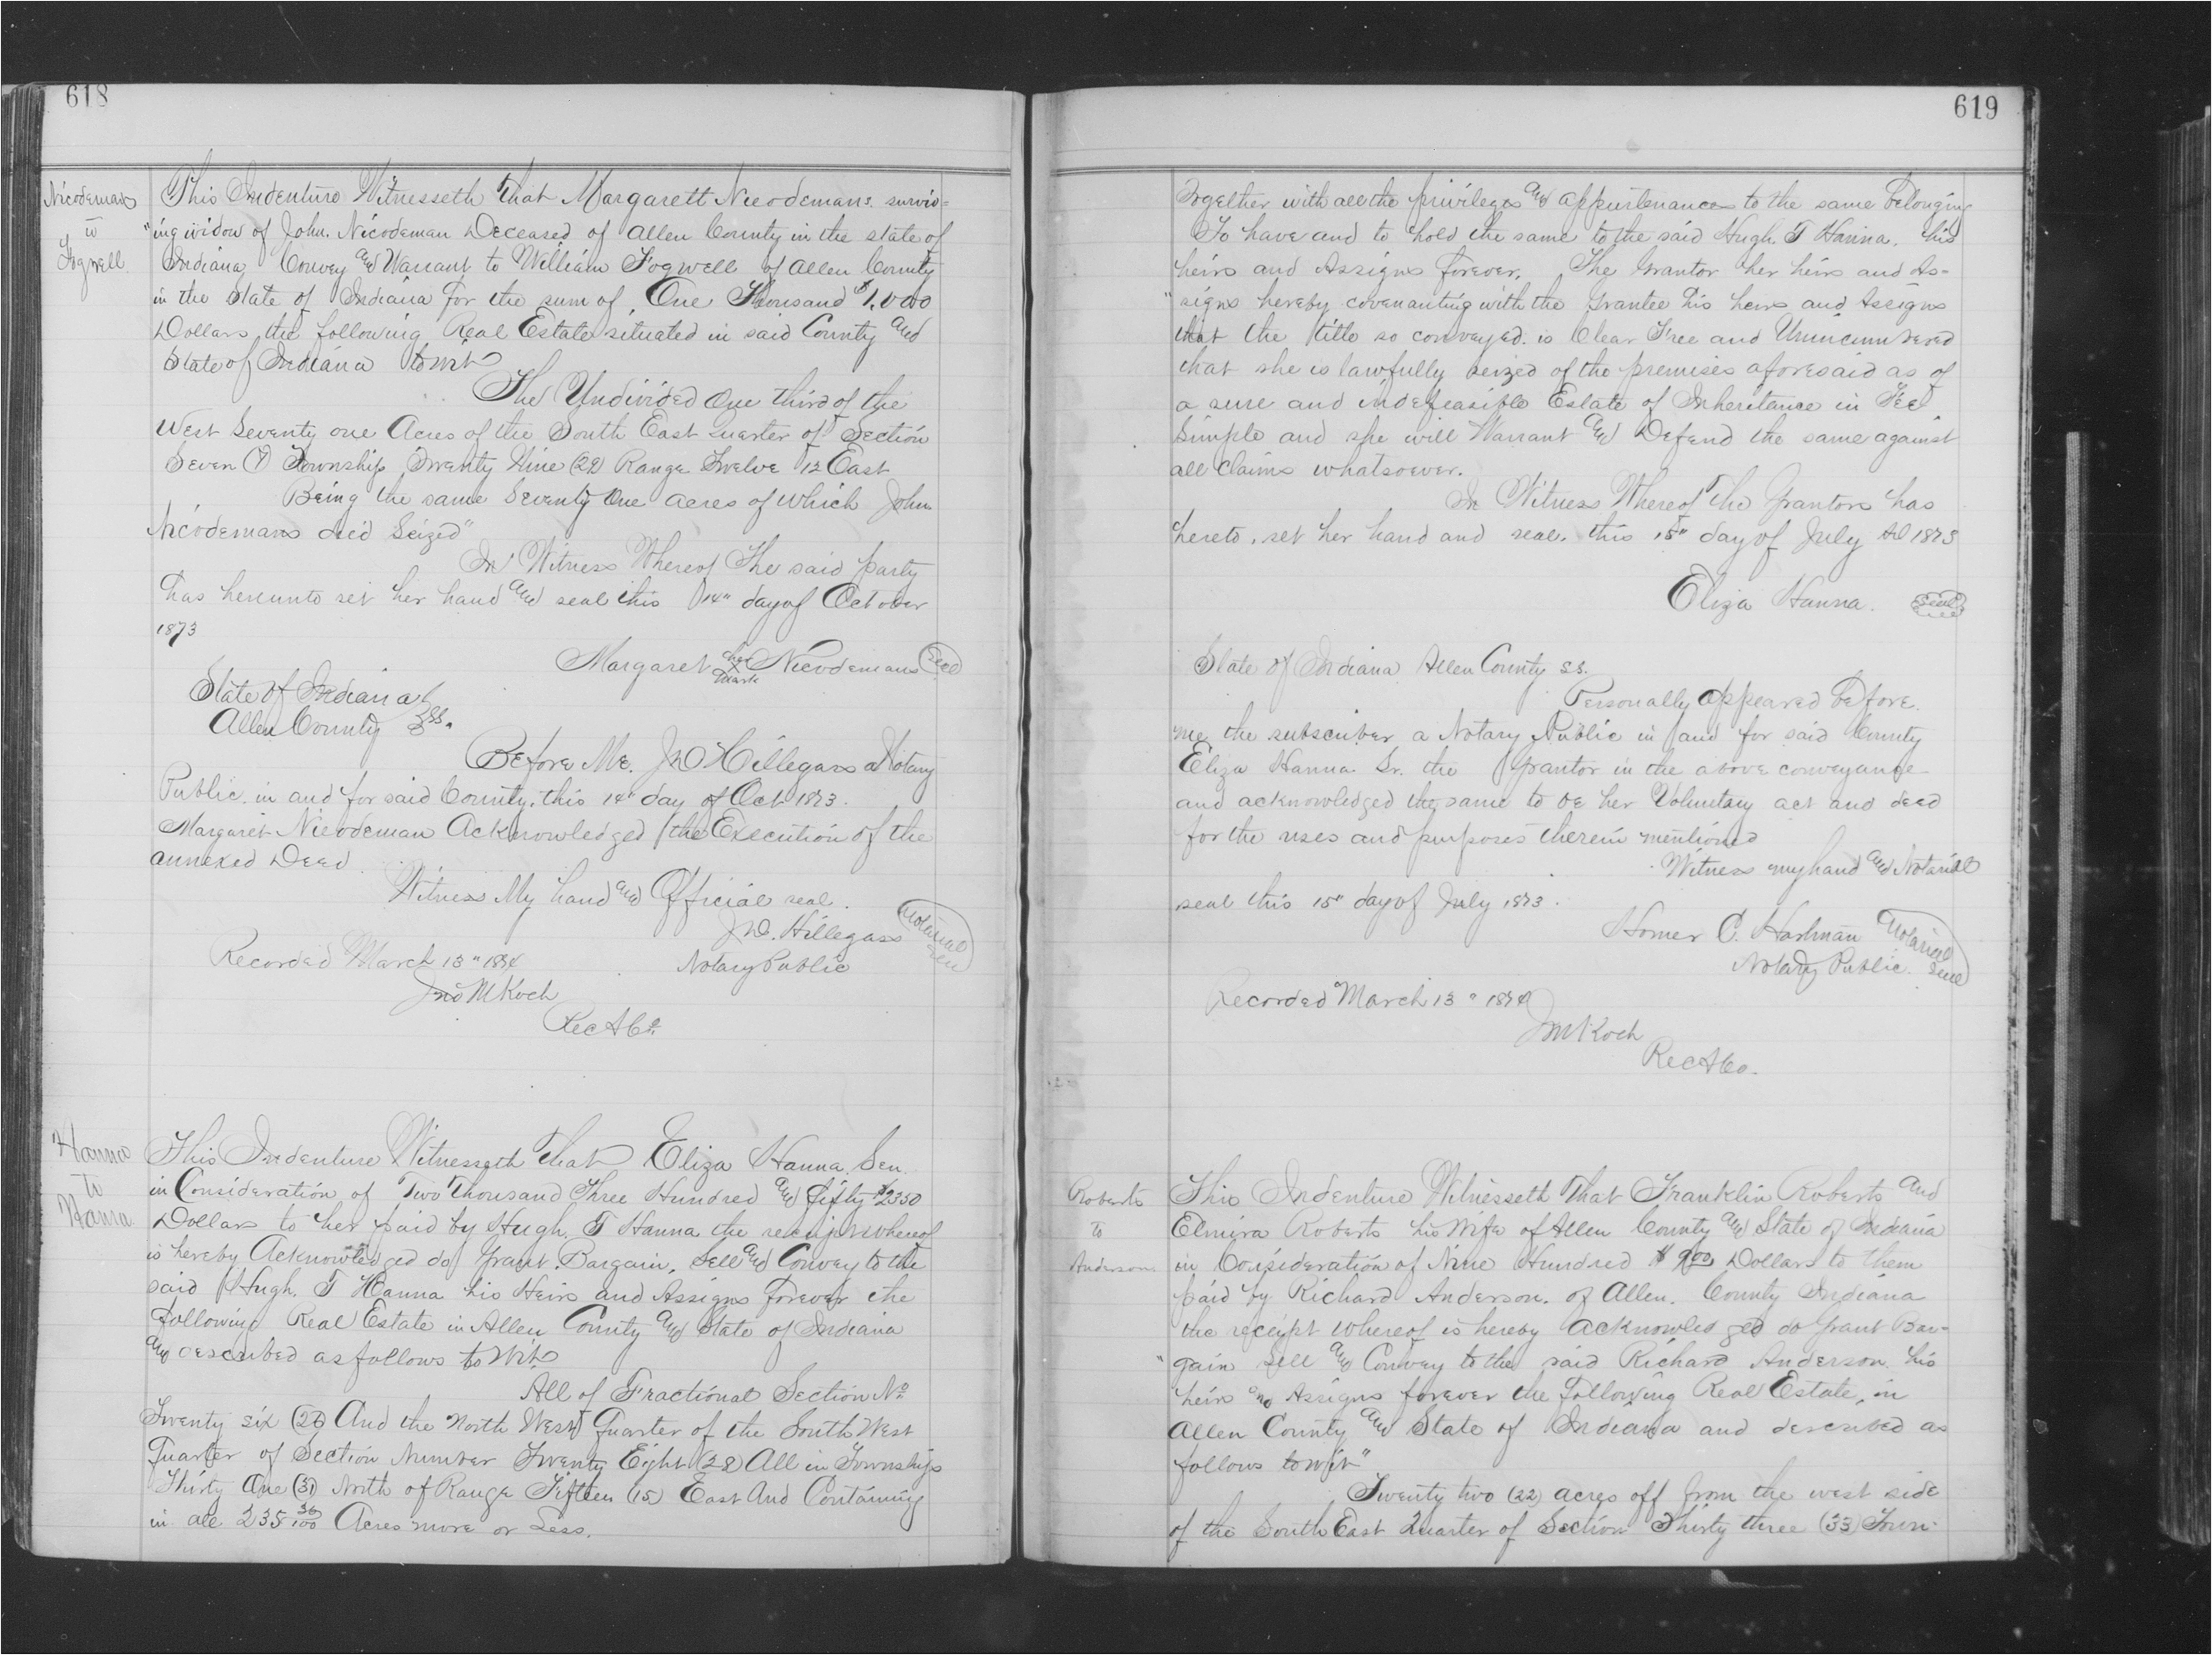 618
Nicodemans
to
Fogwell
This Indenture Witnesseth That Margarett Nicodemans surviv=
"ing widow of John. Nicodeman Deceased of Allen County in the state of
Indiana Convey and Warrant to William Fogwell of Allen County
in the State of Indiana for the sum of One Thousand $1,000
Dollars the following Real Estate situated in said County and
State of Indiana to wit
The Undivided One third of the
West Seventy one Acres of the South East quarter of Section
Seven (7) Township Twenty Nine (29) Range Twelve 12 East
Being the same Seventy One acres of which John
Nicodemans died Seized"
In Witness Whereof The said party
has hereunto set her hand and seal this 14" day of October
1873
Margaret her X mark Nicodemans Seal
State of Indiana
Allen County } ss.
Before Me. J D Hillegass a Notary
Public in and for said County, this 14" day of Oct 1873.
Margaret Nicodeman Acknowledged the Execution of the
annexed Deed
Witness My hand and Official seal.
J D. Hillegass Notarial Seal
Notary Public
Recorded March 13" 1874
Jno M Koch
Rec A Co.
Hanna
to
Hanna
This Indenture Witnesseth That Eliza Hanna Sen.
in Consideration of Two Thousand Three Hundred and fifty $2350
Dollars to her paid by Hugh. T Hanna the receipt whereof
is hereby Acknowledged do Grant. Bargain, Sell and Convey to the
said Hugh. T Hanna his Heirs and Assigns forever the
following Real Estate in Allen County and State of Indiana
and described as follows to Wit
All of Fractional Section No
Twenty six (26) And the North West Quarter of the South West
Quarter of Section Number Twenty Eight (28) All in Township
Thirty One (31) North of Range Fifteen (15) East And Containing
in all 235 30/100 Acres more or Less.
619
Together with all the privileges and appurtenances to the same belonging
To have and to hold the same to the said Hugh T Hanna. his
heirs and Assigns forever. The Grantor her heirs and As-
"signs hereby covenanting with the Grantee his heirs and Assigns
that the title so conveyed. is Clear Free and Unincumbered
that she is lawfully seized of the premises aforesaid as of
a sure and indefeasible Estate of Inheritance in Fee
Simple and she will Warrant and Defend the same against
all claims whatsoever.
In Witness Whereof The Grantors has
hereto. set her hand and seal. this 15" day of July AD 1873
Eliza Hanna. Seal
State of Indiana Allen County SS.
Personally appeared before
me the subscriber a Notary Public in and for said County
Eliza Hanna Sr. the Grantor in the above conveyance
and acknowledged the same to be her Voluntary act and deed
for the uses and purposes therein mentioned
Witness my hand and Notarial
seal this 15" day of July 1873.
Homer C. Hartman Notarial Seal
Notary Public.
Recorded March 13" 1874
J M Koch
Rec A Co.
Roberts
to
Anderson
This Indenture Witnesseth That Franklin Roberts and
Elmira Roberts his Wife of Allen County and State of Indiana
in Consideration of Nine Hundred $900 Dollars to them
paid by Richard Anderson. of Allen. County Indiana
the receipt whereof is hereby acknowledged do Grant Bar-
"gain Sell and Convey to the said Richard Anderson his
heirs and Assigns forever the following Real Estate, in
Allen County and State of Indiana and described as
follows to wit"
Twenty two (22) acres off from the west side
of the South East Quarter of Section Thirty three (33) Town-